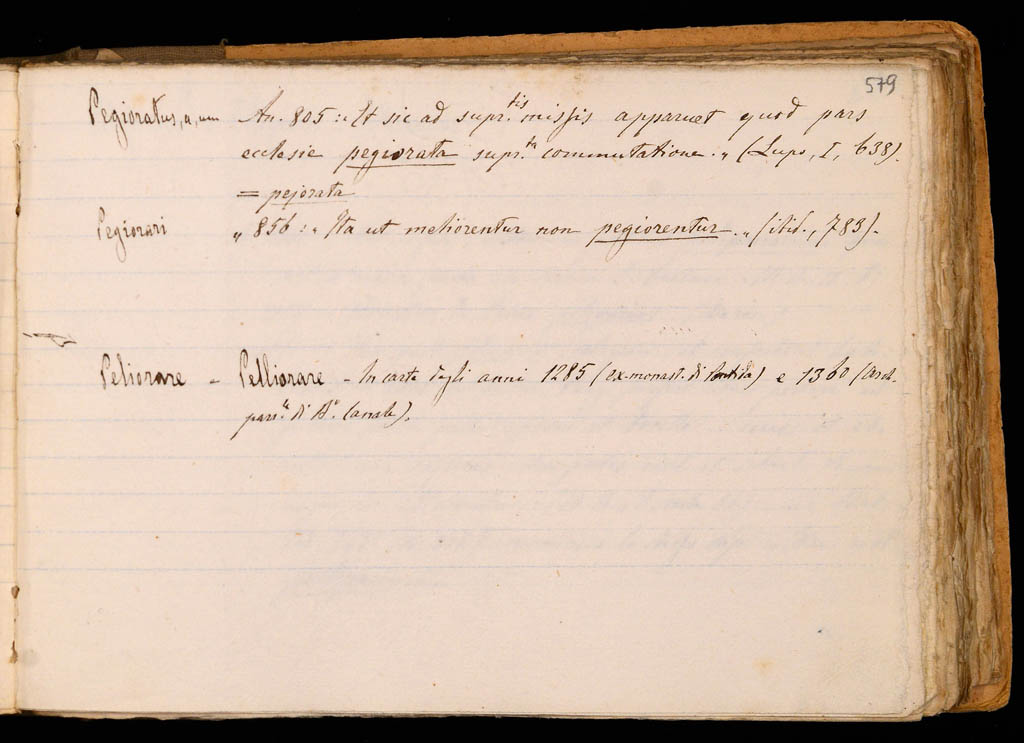 579
Pegioratus, a, um An. 805: „ Et sic ad supr.tis missis apparuet quod pars
ecclesie pegiorata supr.ta commutatione. „ (Lupo, I, 638).
= pejorata
Pegiorari „ 856: „ Ita ut meliorentur non pegiorentur. „ (ibid., 783).
Peliorare = Pelliorare - In carte degli anni 1285 (ex-monast. di Pontida) e 1360 (Arch.
parr.le di